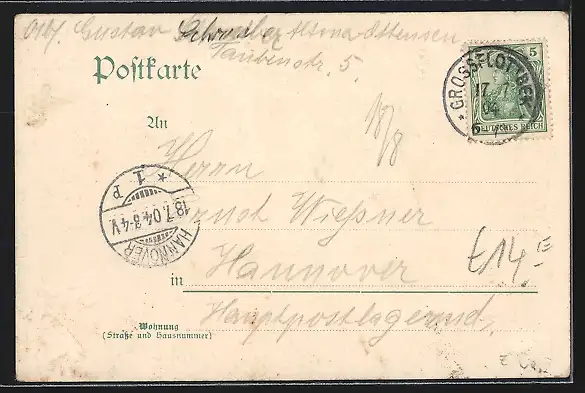 Gustav Schreiber Altona Ottensen
Taubenstr. 5.
Postkarte
5
DEUTSCHES REICH
* GROSSFLOTTBEK *
17. 7
04
6-7
18/8
An
Herrn
Ernst Wießner
in Hannover
Hauptpostlagernd
* 1. P
18.7.04.3-4V
HANNOVER
£14
Wohnung
(Straße und Hausnummer)